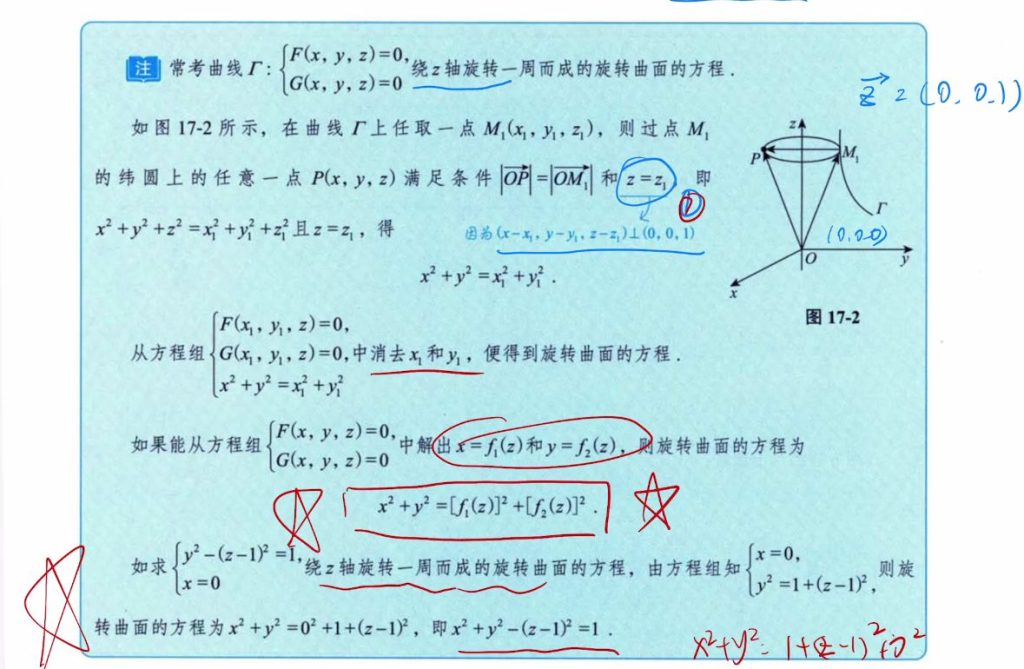 注 常考曲线 Γ: { F(x, y, z)=0, G(x, y, z)=0 绕 z 轴旋转一周而成的旋转曲面的方程.
z⃗ = (0, 0, 1)
如图 17-2 所示, 在曲线 Γ 上任取一点 M₁(x₁, y₁, z₁), 则过点 M₁
的纬圆上的任意一点 P(x, y, z) 满足条件 |OP⃗|=|OM₁⃗| 和 z=z₁, 即
①
x²+y²+z²=x₁²+y₁²+z₁² 且 z=z₁, 得
因为(x-x₁, y-y₁, z-z₁)⊥(0, 0, 1)
x²+y²=x₁²+y₁².
z
P
M₁
Γ
(0,0,0)
O
y
x
图 17-2
从方程组 { F(x₁, y₁, z)=0, G(x₁, y₁, z)=0, x²+y²=x₁²+y₁² 中消去 x₁ 和 y₁, 便得到旋转曲面的方程.
如果能从方程组 { F(x, y, z)=0, G(x, y, z)=0 中解出 x=f₁(z) 和 y=f₂(z), 则旋转曲面的方程为
x²+y²=[f₁(z)]²+[f₂(z)]².
如求 { y²-(z-1)²=1, x=0 绕 z 轴旋转一周而成的旋转曲面的方程, 由方程组知 { x=0, y²=1+(z-1)², 则旋
转曲面的方程为 x²+y²=0²+1+(z-1)², 即 x²+y²-(z-1)²=1.
x²+y²=1+(z-1)²+0²